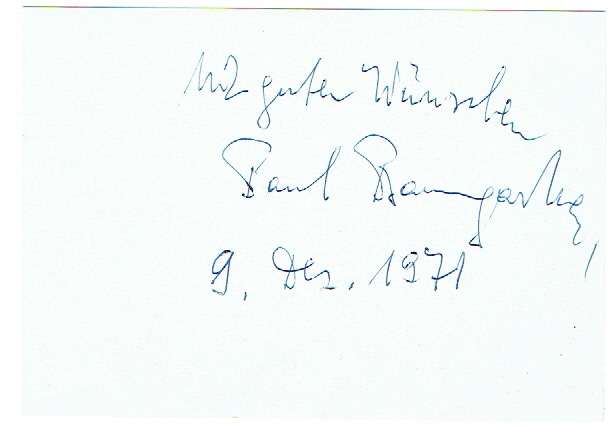 Mit guten Wünschen
Paul Baumgartner,
9. Dez. 1971